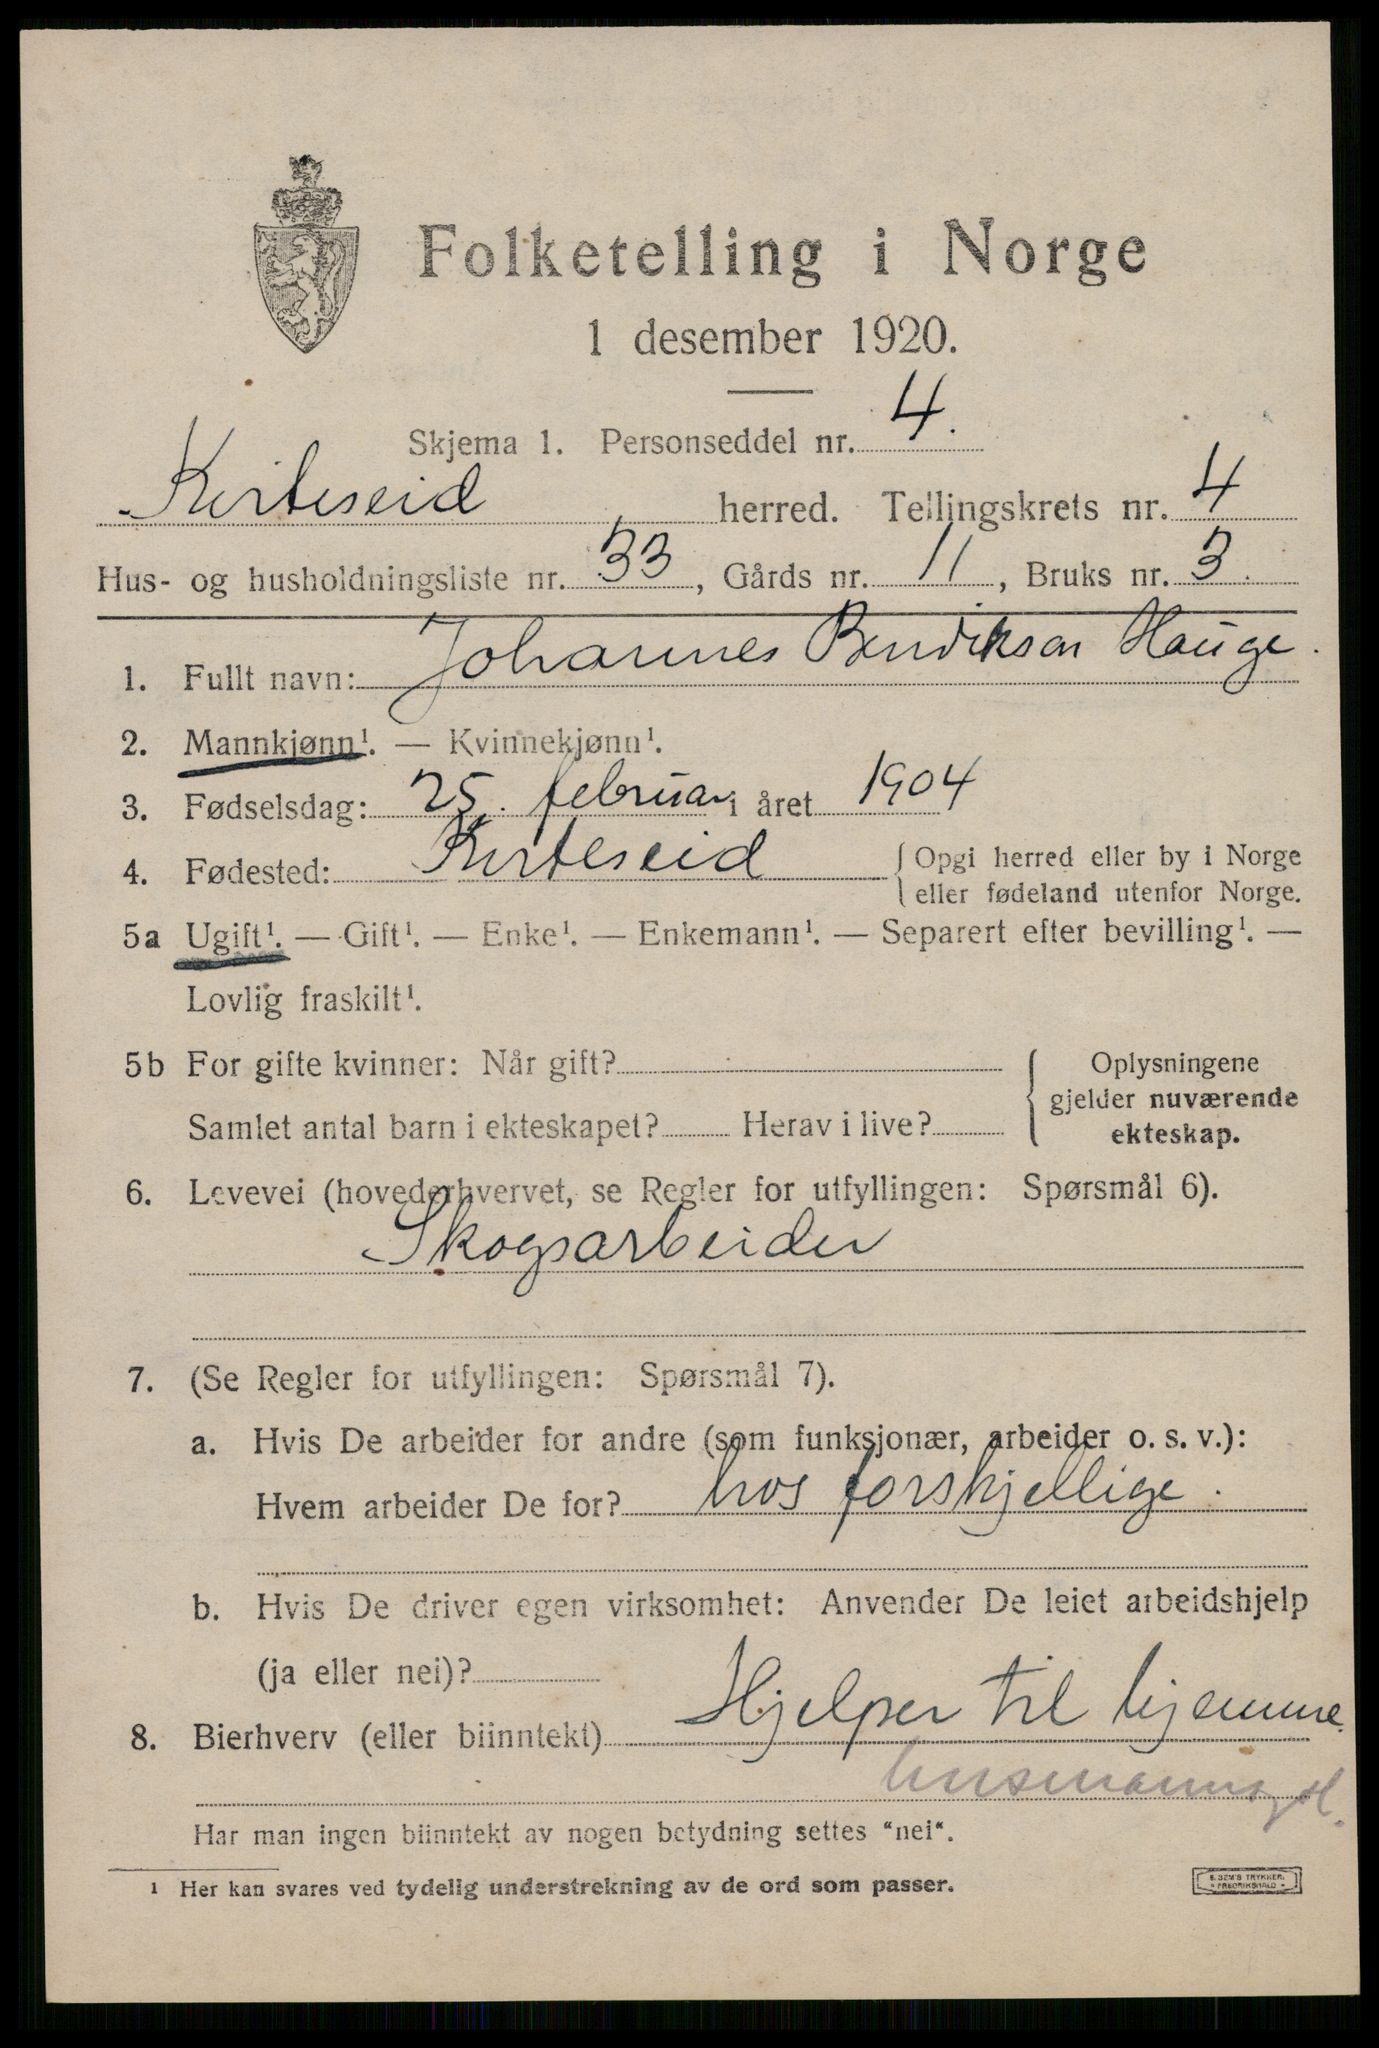 Folketelling i Norge
1 desember 1920.
Skjema 1. Personseddel nr. 4.
Kviteseid herred. Tellingskrets nr. 4
Hus- og husholdningsliste nr. 33, Gårds nr. 11, Bruks nr. 3.
1. Fullt navn: Johannes Bendiksen Hauge.
2. Mannkjønn¹. — Kvinnekjønn¹.
3. Fødselsdag: 25. februar i året 1904
4. Fødested: Kviteseid { Opgi herred eller by i Norge
eller fødeland utenfor Norge.
5a Ugift¹. — Gift¹. — Enke¹. — Enkemann¹. — Separert efter bevilling¹. —
Lovlig fraskilt¹.
5b For gifte kvinner: Når gift? { Oplysningene
gjelder nuværende
Samlet antal barn i ekteskapet? Herav i live? ekteskap.
6. Levevei (hovederhvervet, se Regler for utfyllingen: Spørsmål 6).
Skogsarbeider
7. (Se Regler for utfyllingen: Spørsmål 7).
a. Hvis De arbeider for andre (som funksjonær, arbeider o. s. v.):
Hvem arbeider De for? hos forskjellige.
b. Hvis De driver egen virksomhet: Anvender De leiet arbeidshjelp
(ja eller nei)?
8. Bierhverv (eller biinntekt) Hjelper til hjemme.
Har man ingen biinntekt av nogen betydning settes "nei".
¹ Her kan svares ved tydelig understrekning av de ord som passer.
E. SEM'S TRYKKERI
FREDRIKSHALD